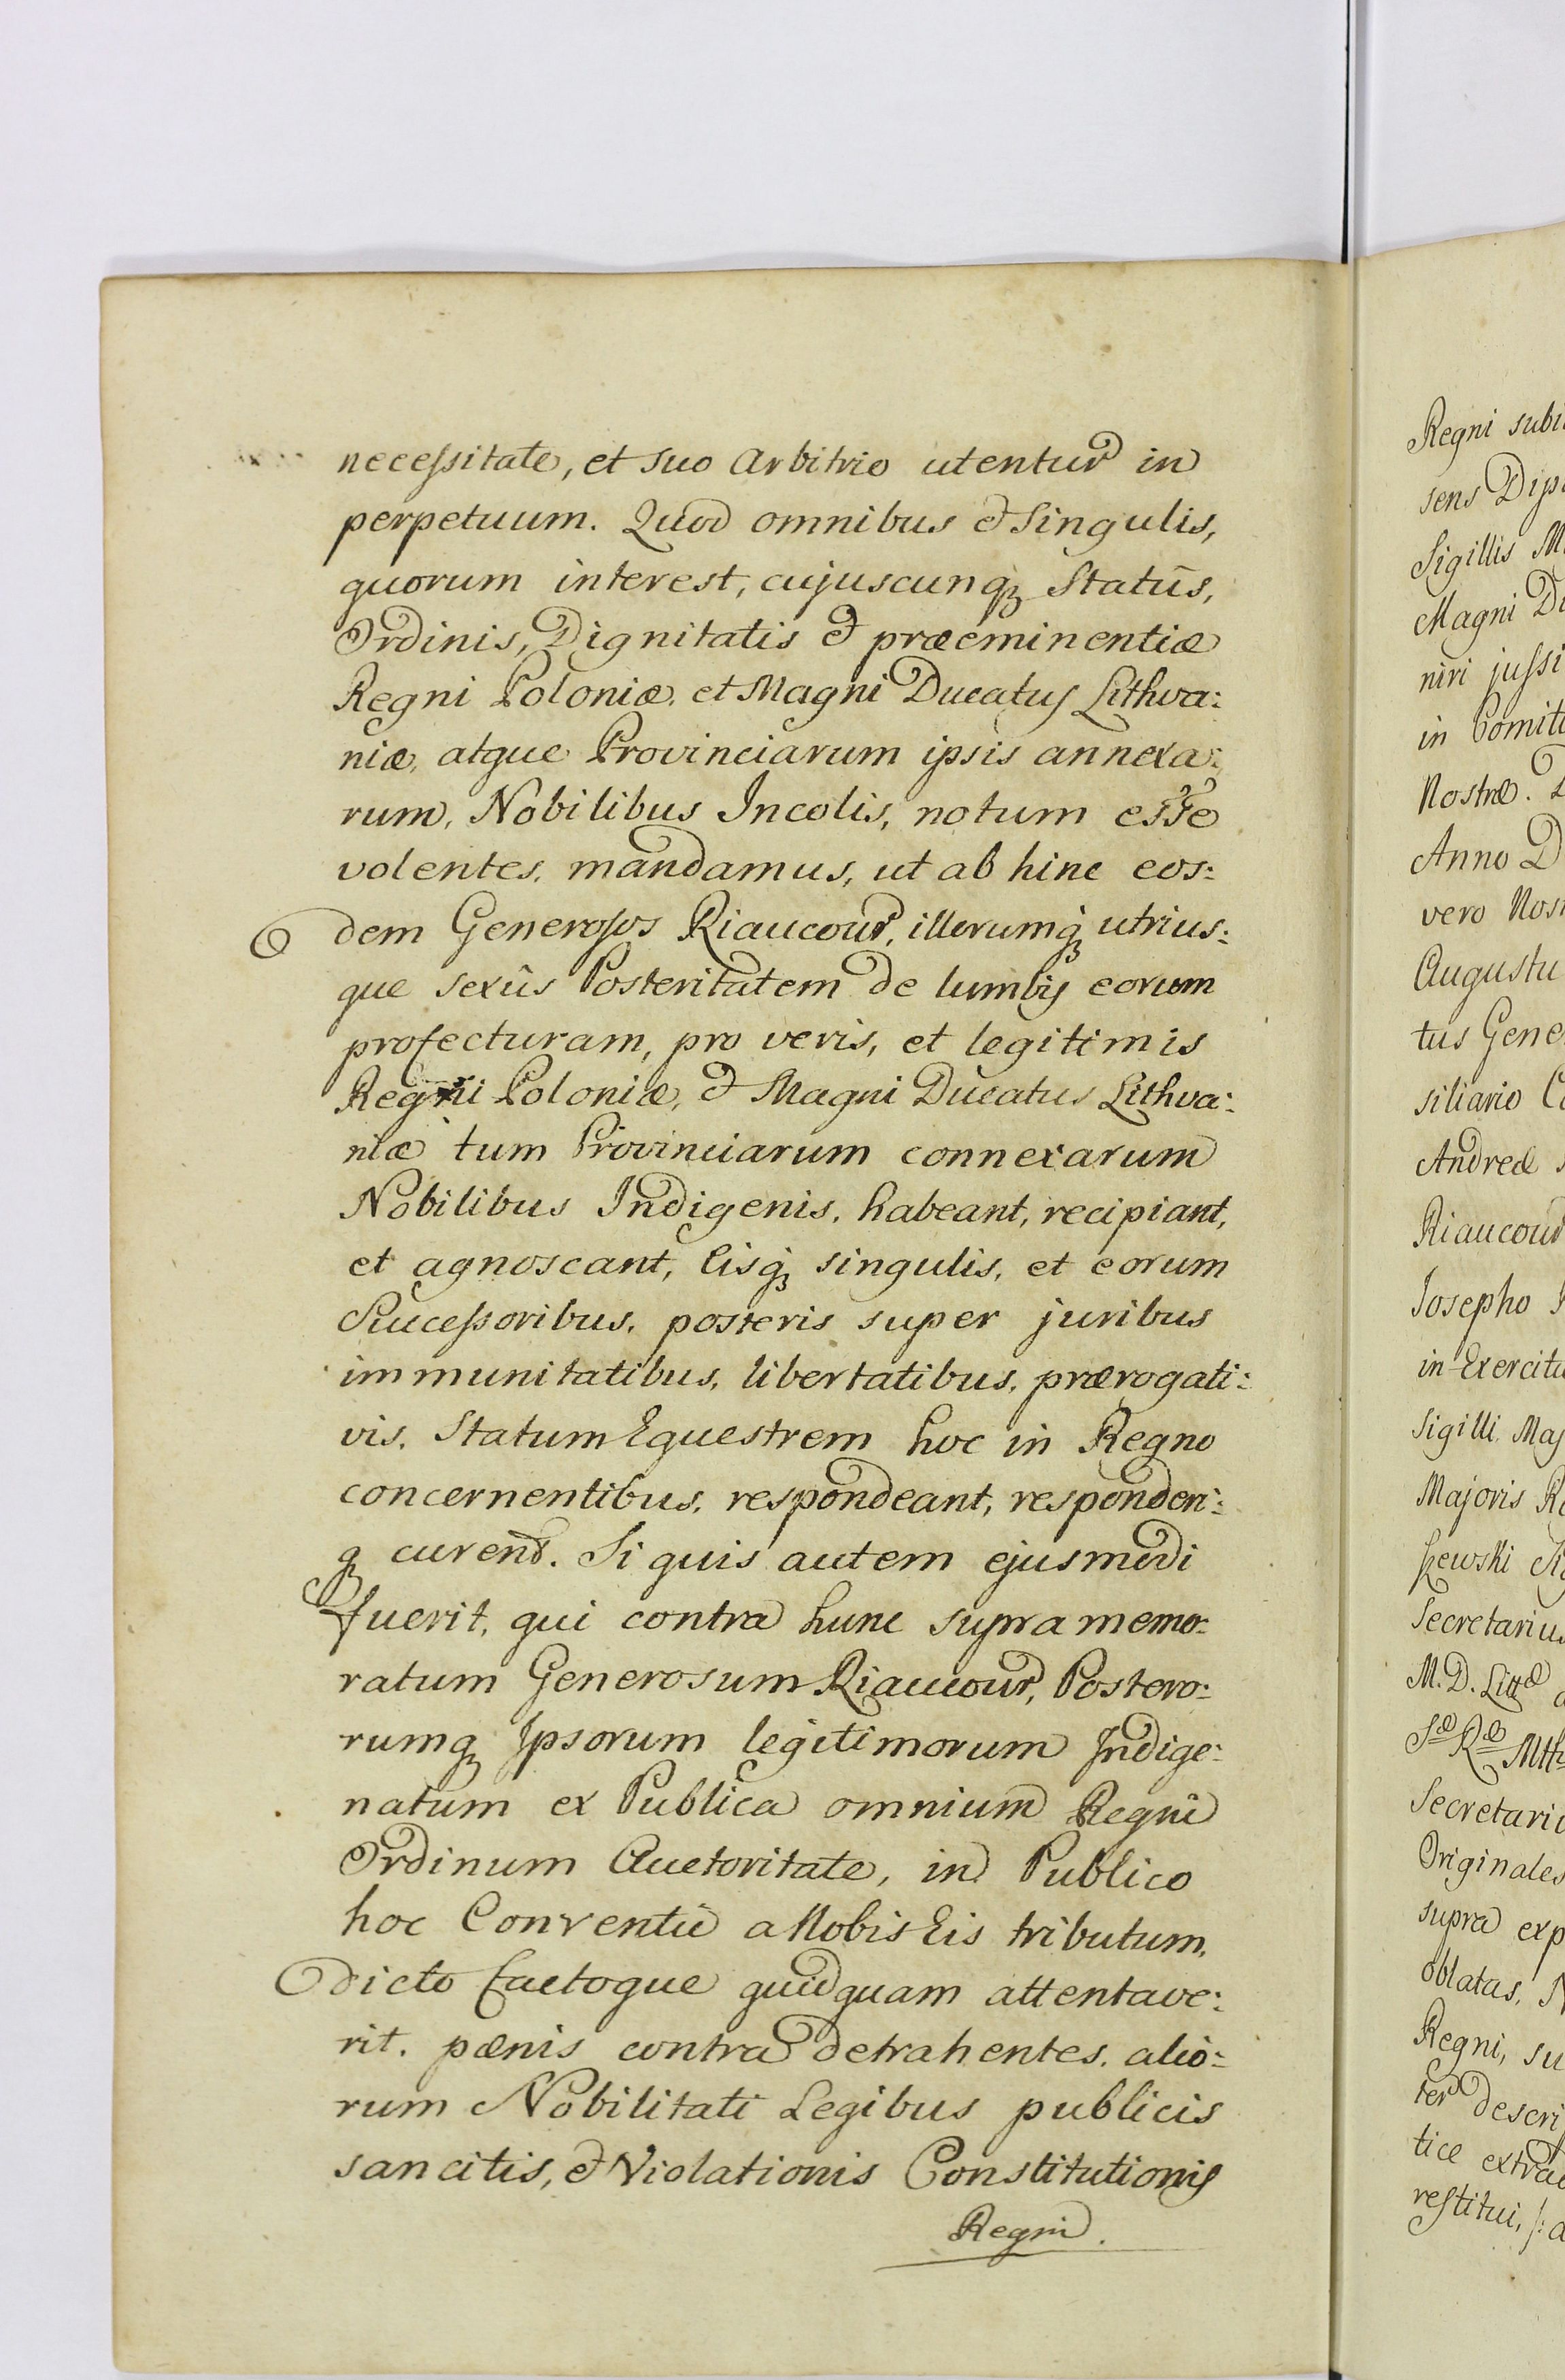 necessitate, et suo Arbitrio utentur in
perpetuum. Quod omnibus & Singulis,
quorum interest, cujuscunq; Statûs,
Ordinis, Dignitatis & præeminentiæ
Regni Poloniæ, et Magni Ducatus Lithva:
niæ, atque Provinciarum ipsis annexa:
rum, Nobilibus Incolis, notum esse
volentes, mandamus, ut ab hinc eos:
dem Generosos Riaucour, illorumq; utrius:
que sexûs Posteritatem de lumbis eorum
profecturam, pro veris, et legitimis
Regni Poloniæ, & Magni Ducatus Lithva:
niæ tum Provinciarum connexarum
Nobilibus Indigenis, habeant, recipiant,
et agnoscant, Eisq; singulis, et eorum
Successoribus, posteris super juribus
immunitatibus, libertatibus, prærogati:
vis, Statum Equestrem hoc in Regno
concernentibus, respondeant, responderi:
q; curent. Si quis autem ejusmodi
fuerit, qui contra hunc supra memo:
ratum Generosum Riaucour, Postero:
rumq; Ipsorum legitimorum Indige:
natum ex Publica omnium Regni
Ordinum Auctoritate, in Publico
hoc Conventu a Nobis Eis tributum,
dicto factoque quidquam attentave:
rit, pœnis contra detrahentes, alio:
rum Nobilitati Legibus publicis
sancitis, & Violationis Constitutionis
Regni.
Regni subi
sens Dip
Sigillis M
Magni D
niri jussi
in Comiti
Nostræ. D
Anno D
vero Nos
Augustu
tus Gene
siliario C
Andreæ
Riaucour
Josepho
in Exercitu
Sigilli Maj
Majoris R
szewski
Secretarius
M. D. Littæ
Sæ Ræ Mtt
Secretari
Originales
supra exp
oblatas, N
Regni, su
ter descri
tice extra
restitui, a